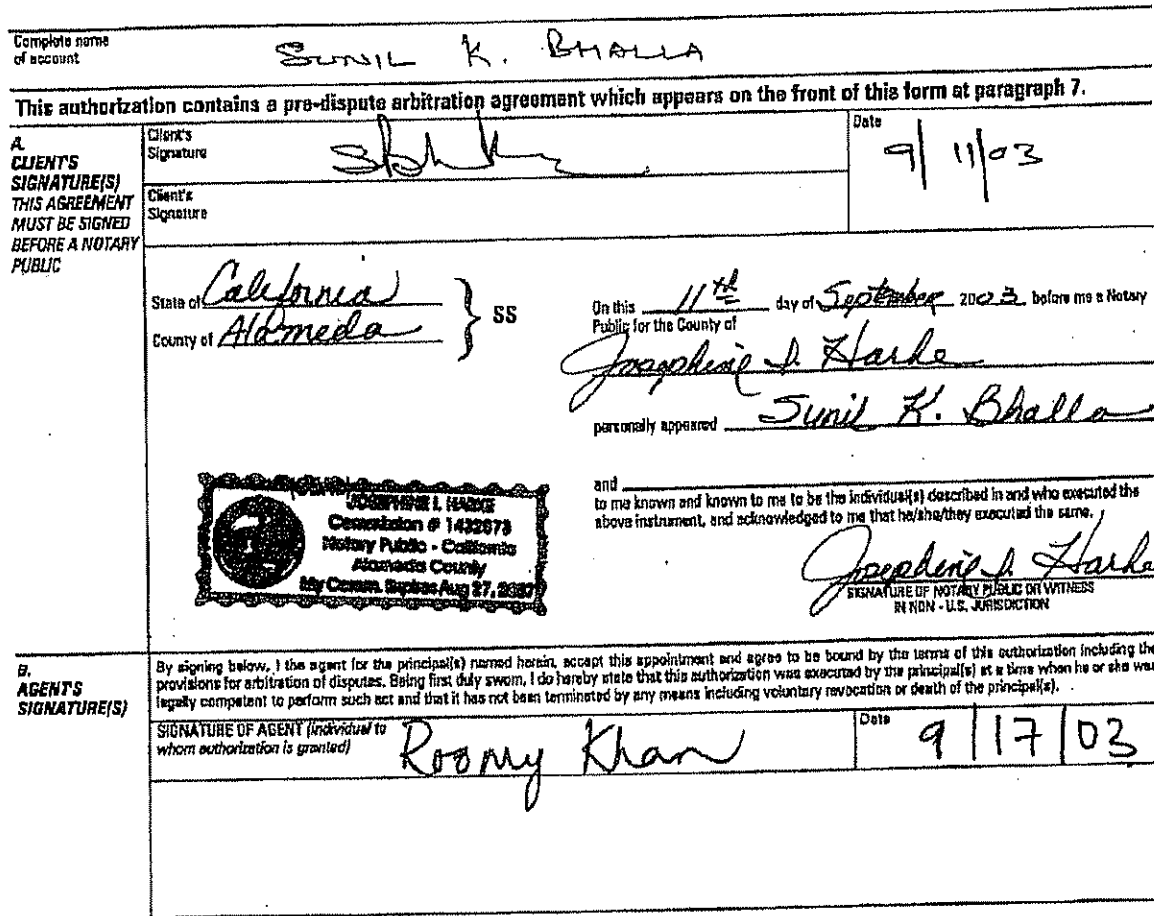 Complete name
of account
SUNIL K. BHALLA
This authorization contains a pre-dispute arbitration agreement which appears on the front of this form at paragraph 7.
A.
CLIENT'S
SIGNATURE(S)
THIS AGREEMENT
MUST BE SIGNED
BEFORE A NOTARY
PUBLIC
Client's
Signature
Date
9/11/03
Client's
Signature
State of California
County of Alameda
} SS
On this 11th day of September 2003 before me a Notary
Public for the County of
Josephine I. Harke
personally appeared Sunil K. Bhalla
and
to me known and known to me to be the individual(s) described in and who executed the
above instrument, and acknowledged to me that he/she/they executed the same.
JOSEPHINE I. HARKE
Commission # 1432673
Notary Public - California
Alameda County
My Comm. Expires Aug 27, 2007
Josephine I. Harke
SIGNATURE OF NOTARY PUBLIC OR WITNESS
IN NON - U.S. JURISDICTION
B.
AGENT'S
SIGNATURE(S)
By signing below, I the agent for the principal(s) named herein, accept this appointment and agree to be bound by the terms of this authorization including the
provisions for arbitration of disputes. Being first duly sworn, I do hereby state that this authorization was executed by the principal(s) at a time when he or she was
legally competent to perform such act and that it has not been terminated by any means including voluntary revocation or death of the principal(s).
SIGNATURE OF AGENT (individual to
whom authorization is granted)
Roomy Khan
Date
9/17/03